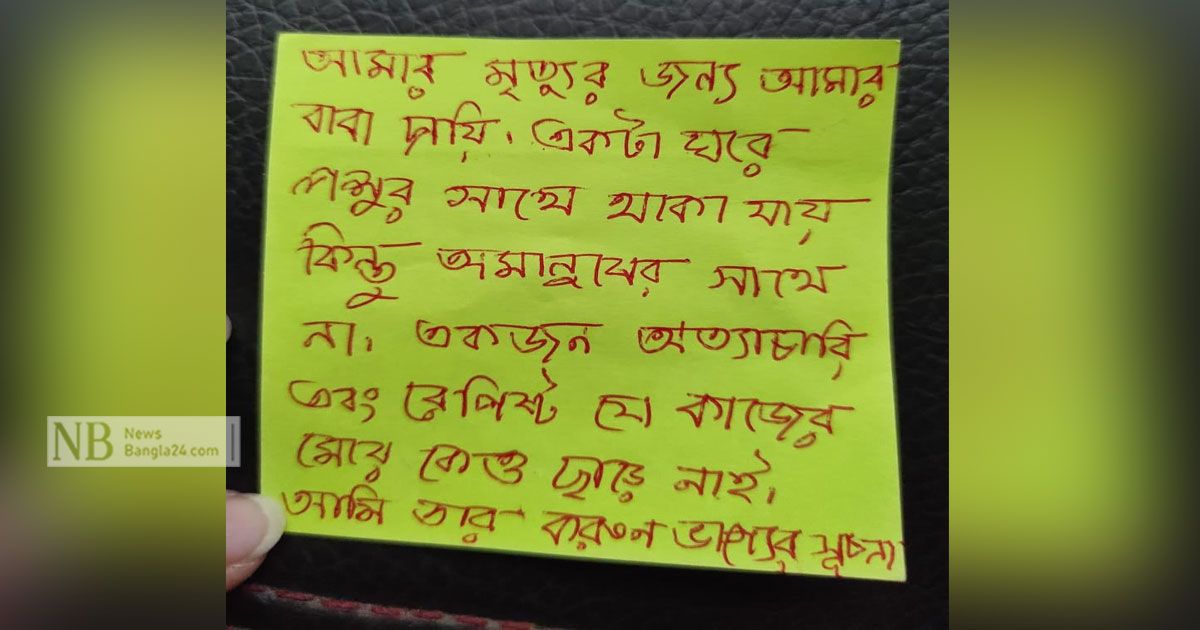 আমার মৃত্যুর জন্য আমার
বাবা দায়ি। একটা ঘরে
পশুর সাথে থাকা যায়
কিন্তু অমানুষের সাথে
না। একজন অত্যাচারি
এবং রেপিষ্ট যে কাজের
মেয়ে কেও ছাড়ে নাই।
আমি তার করুন ভাগ্যের সূচনা
NB News
Bangla24.com